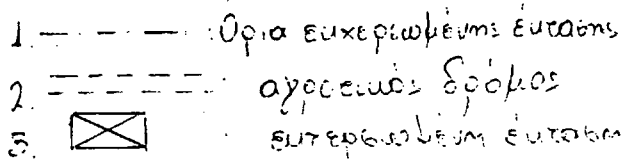 1. Όρια ευχεριωμένης έκτασης
2. αγροτικός δρόμος
3. έκταση